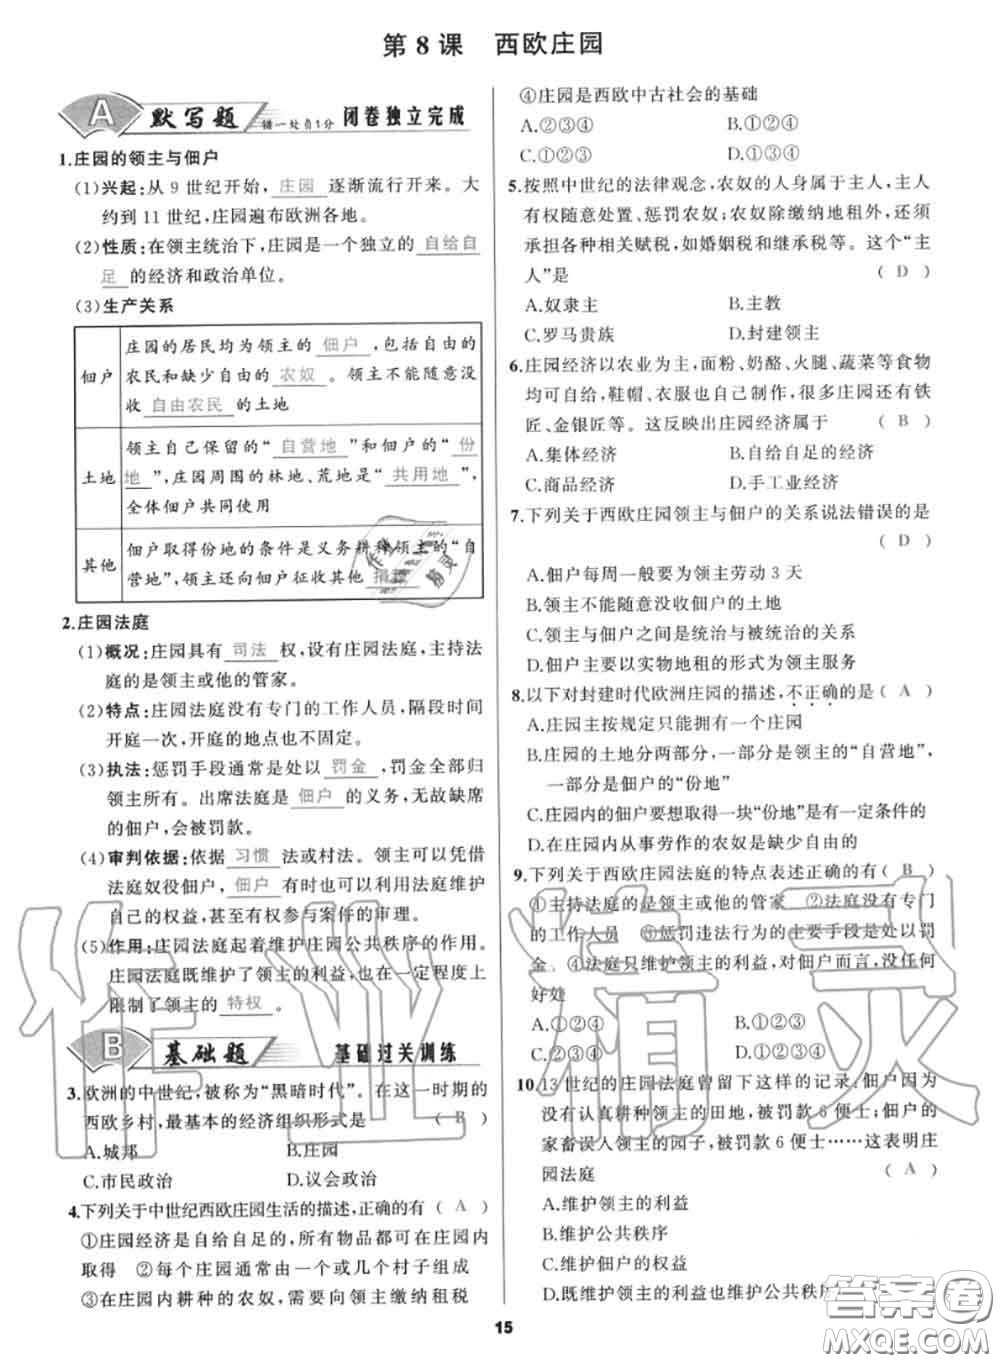 第 8 课 西欧庄园
A 默写题 错一处负1分 闭卷独立完成
1.庄园的领主与佃户
(1)兴起:从 9 世纪开始, 庄园 逐渐流行开来。大
约到 11 世纪,庄园遍布欧洲各地。
(2)性质:在领主统治下,庄园是一个独立的 自给自
足 的经济和政治单位。
(3)生产关系
佃户
庄园的居民均为领主的 佃户 ,包括自由的
农民和缺少自由的 农奴 。领主不能随意没
收 自由农民 的土地
土地
领主自己保留的“ 自营地 ”和佃户的“ 份
地 ”,庄园周围的林地、荒地是“ 共用地 ”,
全体佃户共同使用
其他
佃户取得份地的条件是义务耕种领主的“自
营地”,领主还向佃户征收其他 捐税
2.庄园法庭
(1)概况:庄园具有 司法 权,设有庄园法庭,主持法
庭的是领主或他的管家。
(2)特点:庄园法庭没有专门的工作人员,隔段时间
开庭一次,开庭的地点也不固定。
(3)执法:惩罚手段通常是处以 罚金 ,罚金全部归
领主所有。出席法庭是 佃户 的义务,无故缺席
的佃户,会被罚款。
(4)审判依据:依据 习惯 法或村法。领主可以凭借
法庭奴役佃户, 佃户 有时也可以利用法庭维护
自己的权益,甚至有权参与案件的审理。
(5)作用:庄园法庭起着维护庄园公共秩序的作用。
庄园法庭既维护了领主的利益,也在一定程度上
限制了领主的 特权 。
B 基础题 基础过关训练
3.欧洲的中世纪,被称为“黑暗时代”。在这一时期的
西欧乡村,最基本的经济组织形式是 ( B )
A.城邦 B.庄园
C.市民政治 D.议会政治
4.下列关于中世纪西欧庄园生活的描述,正确的有 ( A )
①庄园经济是自给自足的,所有物品都可在庄园内
取得 ②每个庄园通常由一个或几个村子组成
③在庄园内耕种的农奴,需要向领主缴纳租税
④庄园是西欧中古社会的基础
A.②③④ B.①②④
C.①②③ D.①③④
5.按照中世纪的法律观念,农奴的人身属于主人,主人
有权随意处置、惩罚农奴;农奴除缴纳地租外,还须
承担各种相关赋税,如婚姻税和继承税等。这个“主
人”是 ( D )
A.奴隶主 B.主教
C.罗马贵族 D.封建领主
6.庄园经济以农业为主,面粉、奶酪、火腿、蔬菜等食物
均可自给,鞋帽、衣服也自己制作,很多庄园还有铁
匠、金银匠等。这反映出庄园经济属于 ( B )
A.集体经济 B.自给自足的经济
C.商品经济 D.手工业经济
7.下列关于西欧庄园领主与佃户的关系说法错误的是
( D )
A.佃户每周一般要为领主劳动 3 天
B.领主不能随意没收佃户的土地
C.领主与佃户之间是统治与被统治的关系
D.佃户主要以实物地租的形式为领主服务
8.以下对封建时代欧洲庄园的描述,不正确的是( A )
A.庄园主按规定只能拥有一个庄园
B.庄园的土地分两部分,一部分是领主的“自营地”,
一部分是佃户的“份地”
C.庄园内的佃户要想取得一块“份地”是有一定条件的
D.在庄园内从事劳作的农奴是缺少自由的
9.下列关于西欧庄园法庭的特点表述正确的有( B )
①主持法庭的是领主或他的管家 ②法庭没有专门
的工作人员 ③惩罚违法行为的主要手段是处以罚
金 ④法庭只维护领主的利益,对佃户而言,没任何
好处
A.①②④ B.①②③
C.②③④ D.①③④
10.13世纪的庄园法庭曾留下这样的记录:佃户因为
没有认真耕种领主的田地,被罚款6便士;佃户的
家畜误入领主的园子,被罚款6便士……这表明庄
园法庭 ( A )
A.维护领主的利益
B.维护公共秩序
C.维护佃户的权益
D.既维护领主的利益也维护公共秩序
15
作业精灵
作业
精灵
答案圈
MXQE.COM